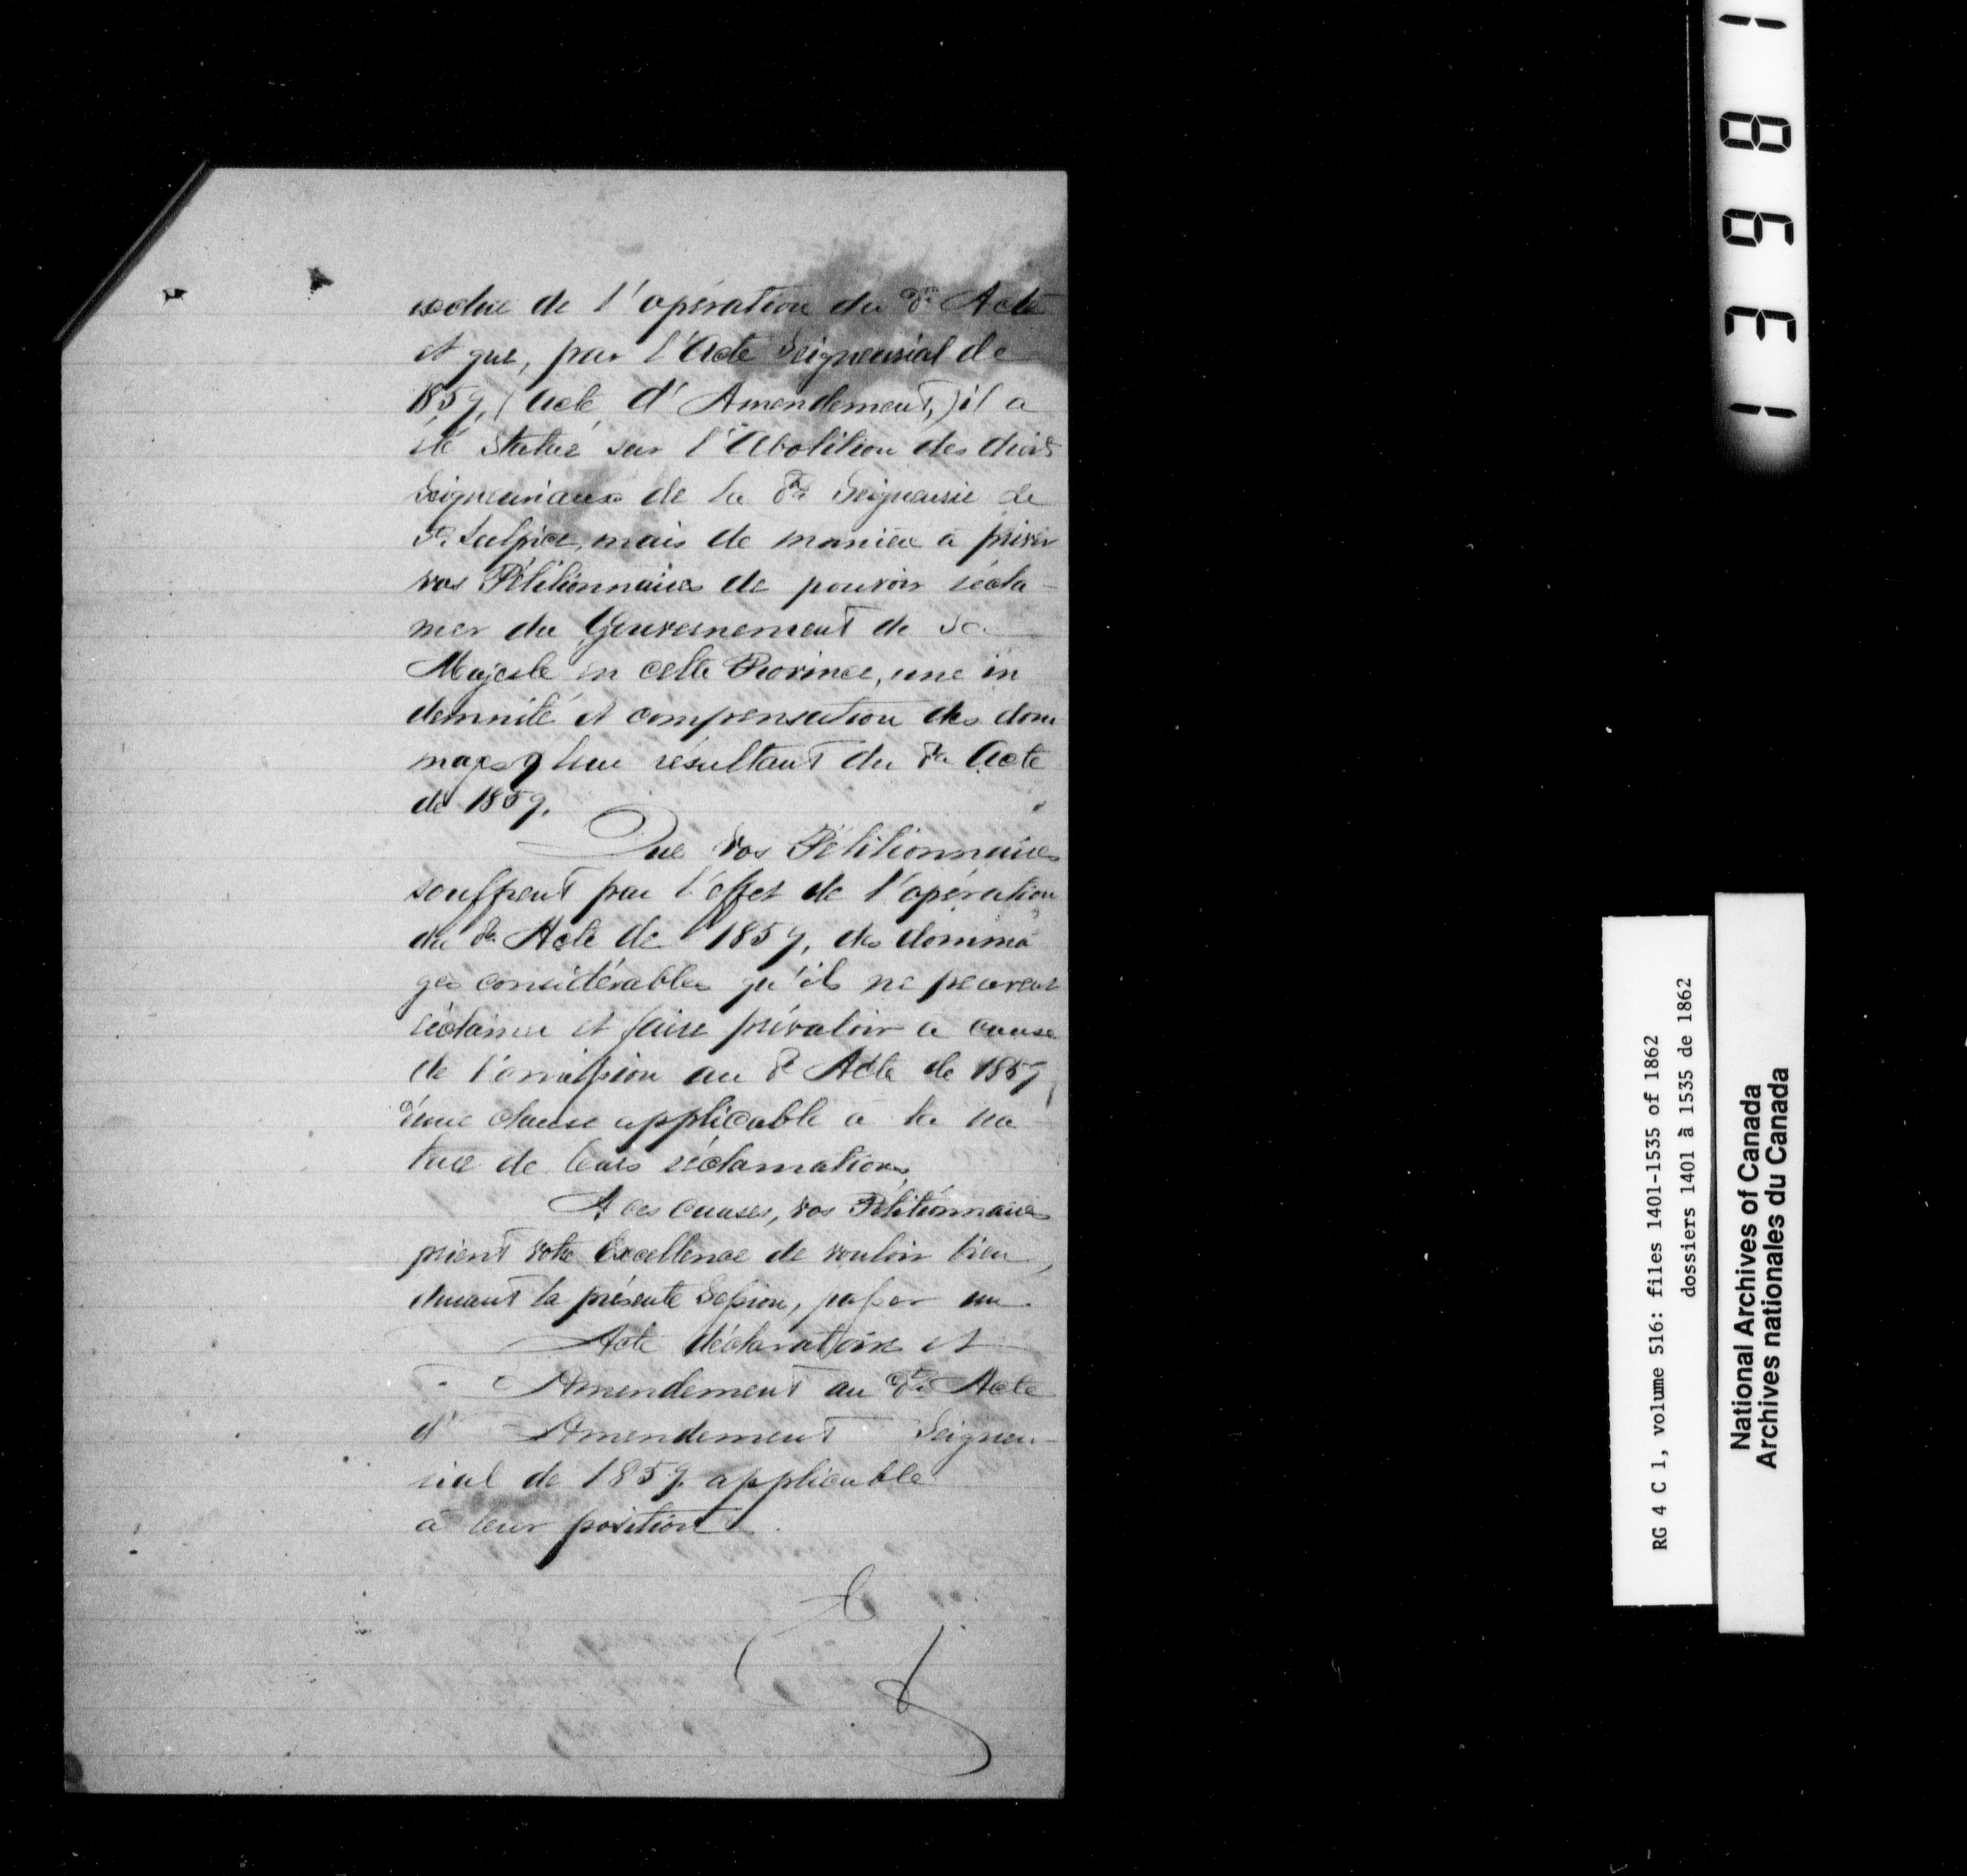 exclue de l'opération du dt. Acte
et que, par l'Acte Seigneurial de
1859, (Acte d'Amendement,) il a
été statué sur l'Abolition des droits
Seigneuriaux de la dte Seigneurie de
St. Sulpice, mais de manière à priver
vos Pétitionnaires de pouvoir récla-
mer du Gouvernement de Sa
Majesté en cette Province, une in
demnité et compensation des dom
mages leur résultant du dt. Acte
de 1859.
Que vos Pétitionnaires
souffrent par l'effet de l'opération
du dt. Acte de 1859, des domma
ges considérables qu'ils ne peuvent
réclamer et faire prévaloir à cause
de l'omission au dt Acte de 1859
d'une clause applicable à la na
ture de leurs réclamations,
A ces causes, vos Pétitionnaires
prient votre Excellence de vouloir bien,
durant la présente Session, passer un
Acte déclaratoire et
Amendement au dt. Acte
d'Amendement Seigneu-
rial de 1859 applicable
à leur position.
1 3 6 8 1
RG 4 C 1, volume 516: files 1401-1535 of 1862
dossiers 1401 à 1535 de 1862
National Archives of Canada
Archives nationales du Canada